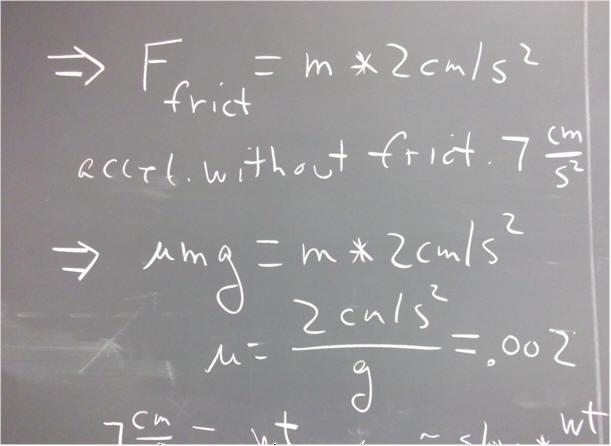 ⇒ F_frict = m * 2 cm/s²
accel. without frict. 7 cm/s²
⇒ μmg = m * 2 cm/s²
μ = 2 cm/s² / g = .002
7 cm — wt
wt